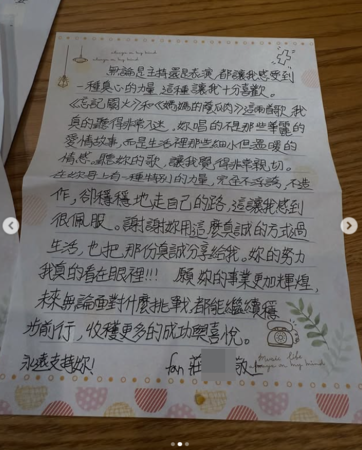 always in my heart
無論是主持還是表演，都讓我感受到
一種真心的力量，這種讓我十分喜歡。
《忘記關火》和《媽媽的苦瓜肉》這兩首歌，我
真的聽得非常入迷，妳唱的不是那些華麗的
愛情故事，而是生活裡那些細小但溫暖的
情感，聽妳的歌，讓我覺得非常親切。
在妳身上有一種特別的力量，完全不浮誇，不造
作，卻穩穩地走自己的路，這讓我感到
很佩服。謝謝妳用這麼真誠的方式過
生活，也把那份真誠分享給我。妳的努力
我真的看在眼裡!!! 願妳的事業更加輝煌，
未來無論面對什麼挑戰，都能繼續穩
步前行，收穫更多的成功與喜悅。
永遠支持妳! fan 莊 敬上